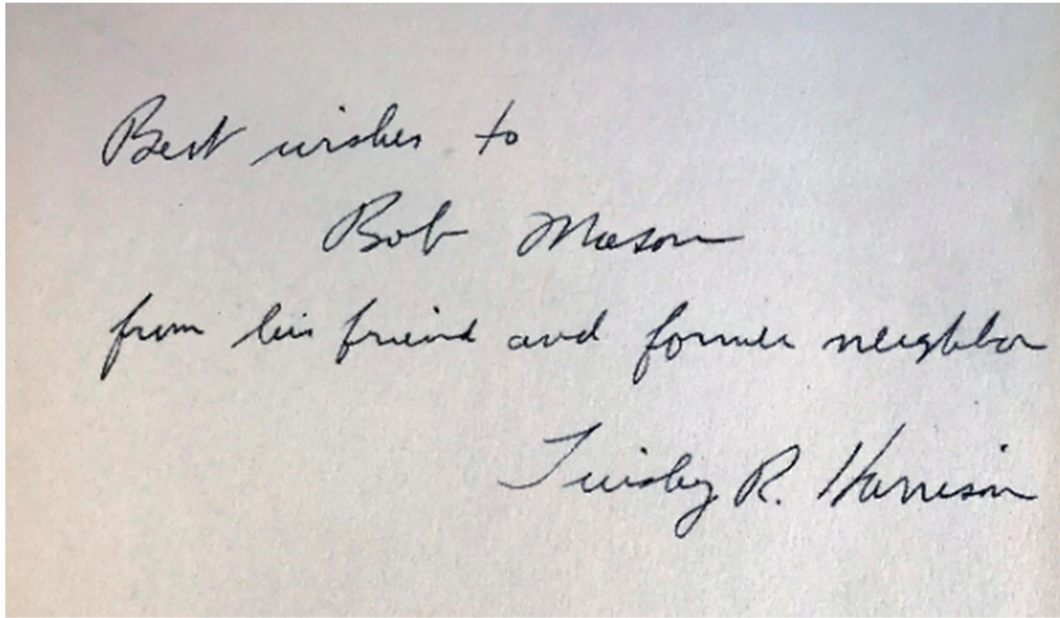 Best wishes to
Bob Mason
from his friend and former neighbor
Tinsley R. Harrison